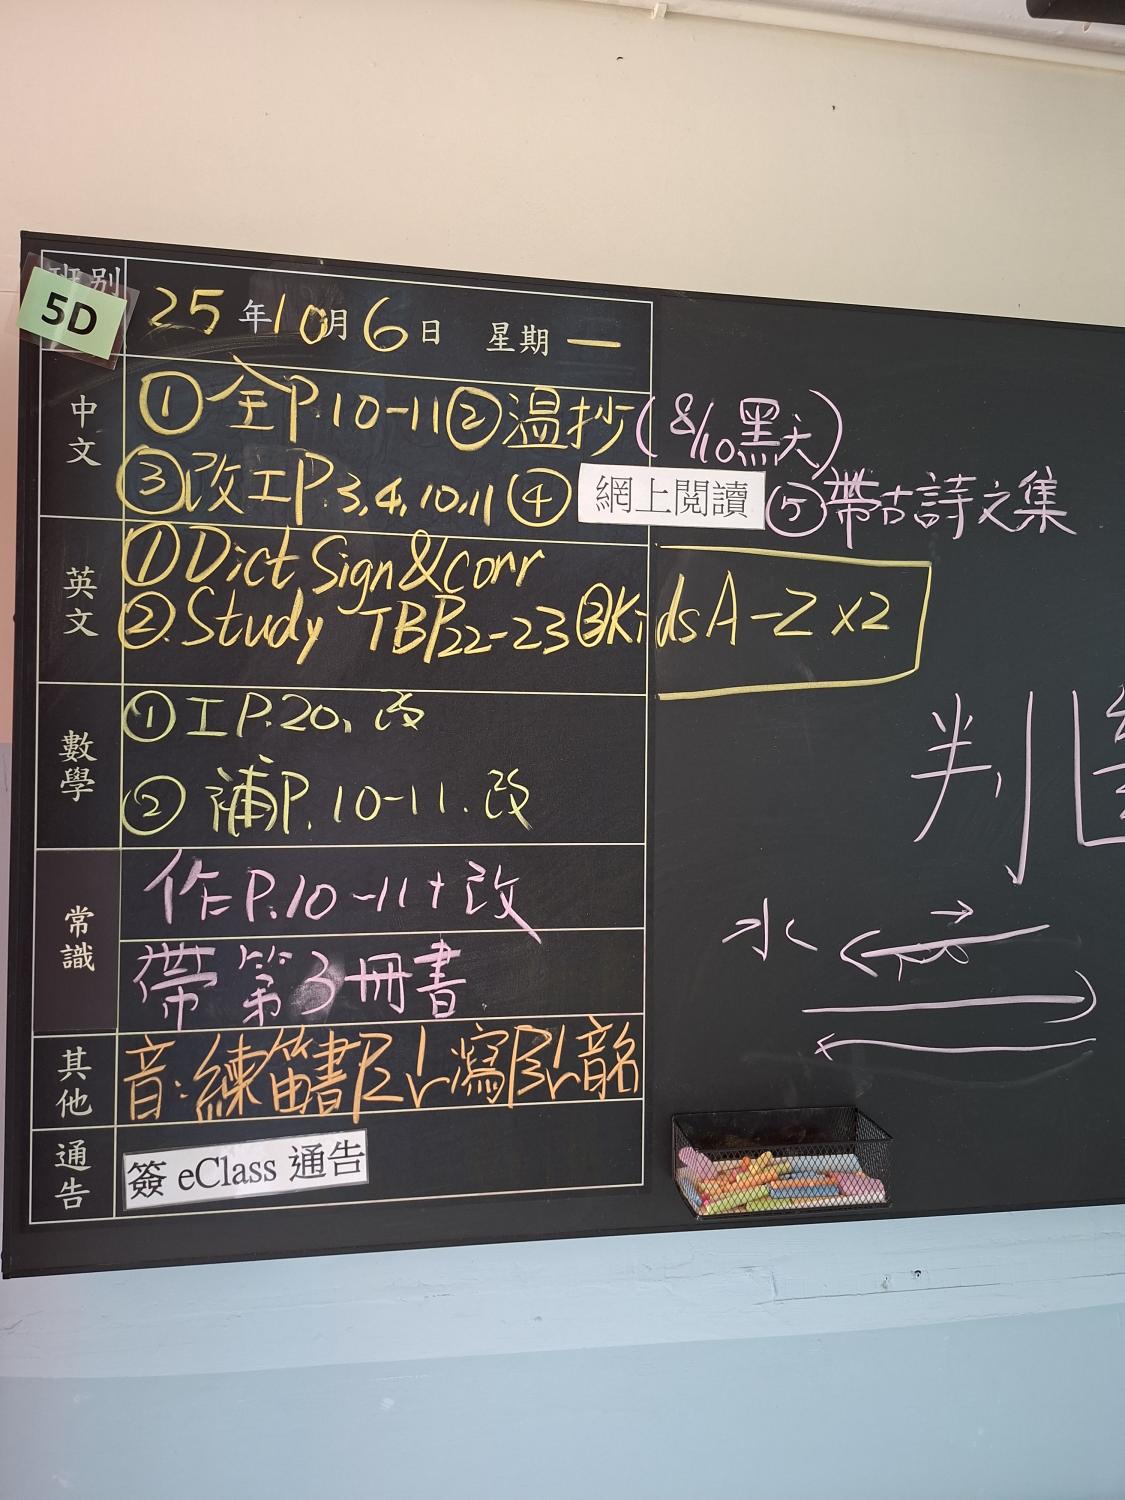 班別
5D
25年10月6日 星期一
中文
①全P.10-11②溫抄(8/10默大)
③改工P.3,4,10,11④網上閱讀⑤帶古詩文集
英文
①Dict Sign&corr
②.Study TBP22-23③Kids A-Z x2
數學
①工P.20,改
②補P.10-11.改
常識
作P.10-11+改
帶第3冊書
其他
音:練笛書
通告
簽 eClass 通告
判
水